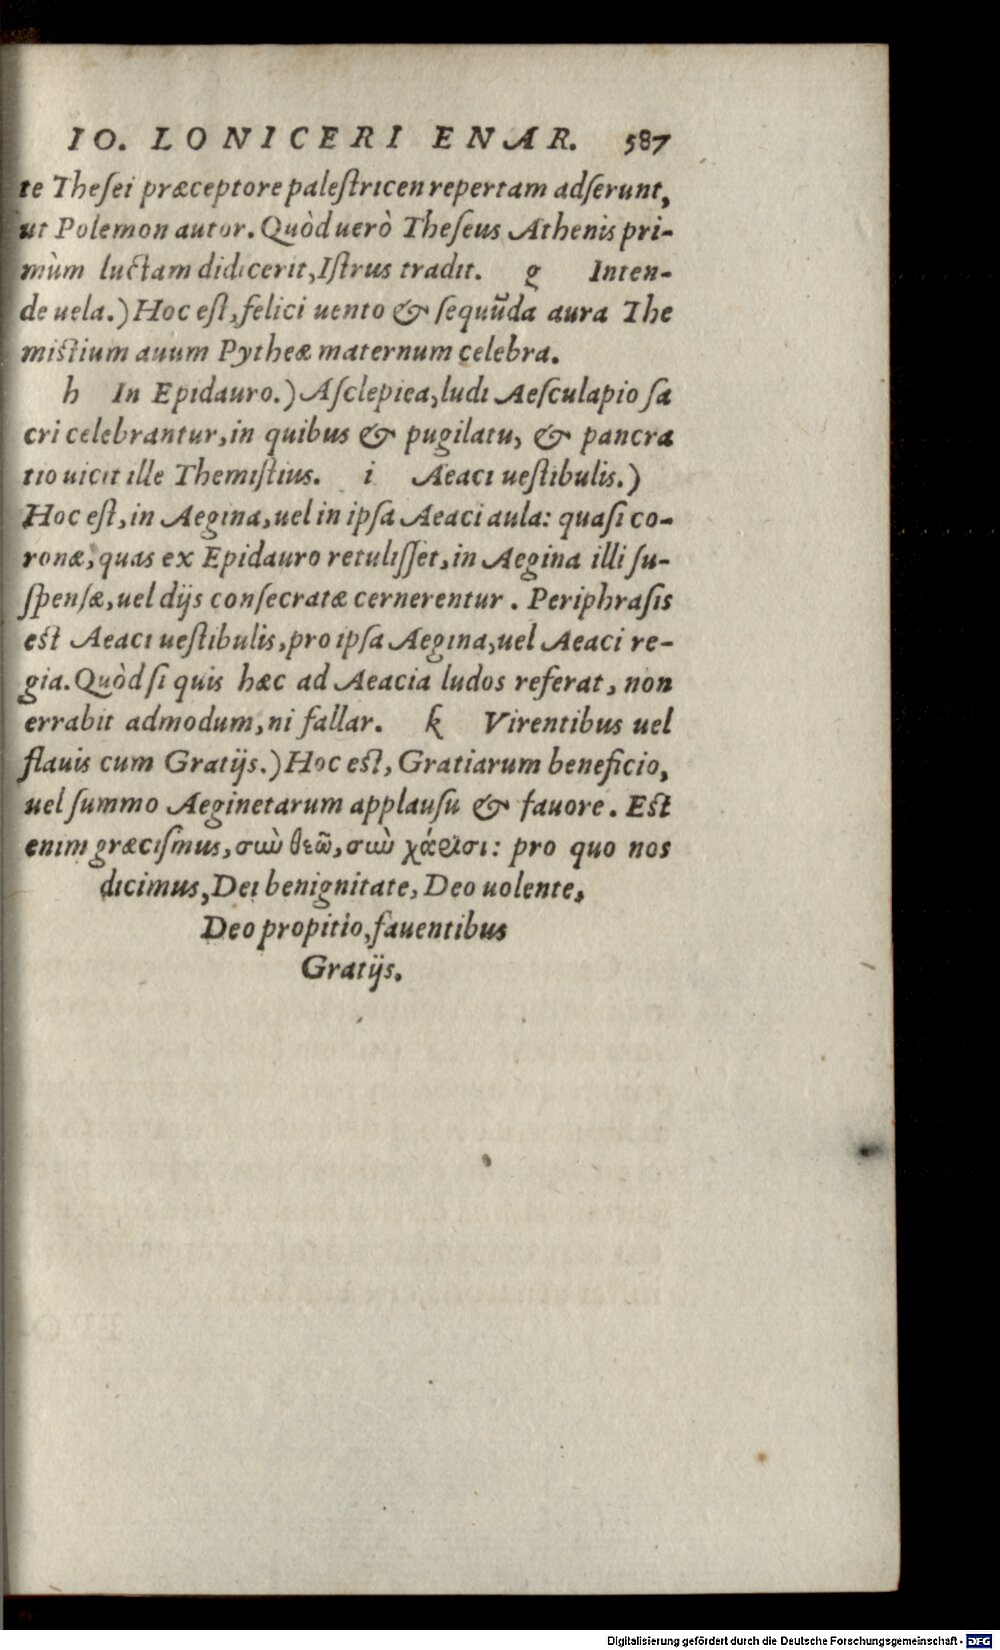 IO. LONICERI ENAR. 587
te Theſei præceptore paleſtricen repertam adſerunt,
ut Polemon autor. Quòd uerò Theſeus Athenis pri-
mùm luctam didicerit, Iſtrus tradit. g Inten-
de uela.) Hoc eſt, felici uento & ſequūda aura The
miſtium auum Pytheæ maternum celebra.
h In Epidauro.) Aſclepiea, ludi Aeſculapio ſa
cri celebrantur, in quibus & pugilatu, & pancra
tio uicit ille Themiſtius. i Aeaci ueſtibulis.)
Hoc eſt, in Aegina, uel in ipſa Aeaci aula: quaſi co-
ronæ, quas ex Epidauro retuliſſet, in Aegina illi ſu-
ſpenſæ, uel dijs conſecratæ cernerentur. Periphraſis
eſt Aeaci ueſtibulis, pro ipſa Aegina, uel Aeaci re-
gia. Quòd ſi quis hæc ad Aeacia ludos referat, non
errabit admodum, ni fallar. k Virentibus uel
flauis cum Gratijs.) Hoc eſt, Gratiarum beneficio,
uel ſummo Aeginetarum applauſu & fauore. Eſt
enim græciſmus, σὺν θεῶ, σὺν χάρισι: pro quo nos
dicimus, Dei benignitate, Deo uolente,
Deo propitio, fauentibus
Gratijs.
Digitalisierung gefördert durch die Deutsche Forschungsgemeinschaft - DFG